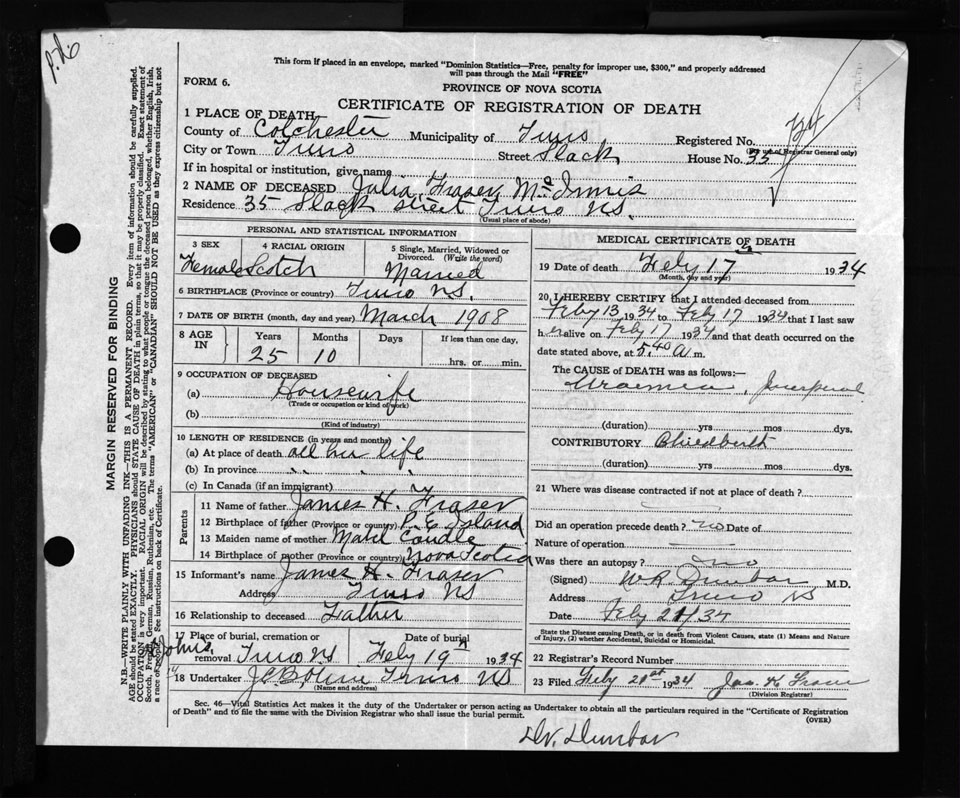 P.D.
This form if placed in an envelope, marked "Dominion Statistics—Free, penalty for improper use, $300," and properly addressed
will pass through the Mail "FREE"
FORM 6.
PROVINCE OF NOVA SCOTIA
CERTIFICATE OF REGISTRATION OF DEATH
1 PLACE OF DEATH
County of Colchester Municipality of Truro Registered No.
(For use of Registrar General only)
City or Town Truro Street Slack House No. 35
If in hospital or institution, give name
2 NAME OF DECEASED Julia Fraser McInnis
Residence 35 Slack Street Truro N.S.
(Usual place of abode)
PERSONAL AND STATISTICAL INFORMATION
3 SEX 4 RACIAL ORIGIN 5 Single, Married, Widowed or Divorced. (Write the word)
Female Scotch Married
6 BIRTHPLACE (Province or country) Truro N.S.
7 DATE OF BIRTH (month, day and year) March 1908
8 AGE IN Years Months Days If less than one day,
25 10 hrs. or min.
9 OCCUPATION OF DECEASED
(a) Housewife
(Trade or occupation or kind of work)
(b)
(Kind of industry)
10 LENGTH OF RESIDENCE (in years and months)
(a) At place of death all her life
(b) In province " " "
(c) In Canada (if an immigrant)
Parents
11 Name of father James H. Fraser
12 Birthplace of father (Province or country) P. E. Island
13 Maiden name of mother Mabel Caudle
14 Birthplace of mother (Province or country) Nova Scotia
15 Informant's name James H. Fraser
Address Truro NS
16 Relationship to deceased Father
17 Place of burial, cremation or removal Truro NS Date of burial Feby 19 1934
18 Undertaker Truro NS
(Name and address)
MEDICAL CERTIFICATE OF DEATH
19 Date of death Feby 17 1934
(Month, day and year)
20 I HEREBY CERTIFY that I attended deceased from
Feby 13 1934 to Feby 17 1934 that I last saw
her alive on Feby 17 1934 and that death occurred on the
date stated above, at 5.40 A m.
The CAUSE of DEATH was as follows:—
Uraemia, Puerperal
(duration) yrs mos dys.
CONTRIBUTORY Childbirth
(duration) yrs mos dys.
21 Where was disease contracted if not at place of death?
Did an operation precede death? no Date of
Nature of operation
Was there an autopsy? no
(Signed) W R Dunbar M.D.
Address Truro NS
Date Feby 21/34
State the Disease causing Death, or in death from Violent Causes, state (1) Means and Nature of Injury, (2) whether Accidental, Suicidal or Homicidal.
22 Registrar's Record Number
23 Filed Feby 21st 1934 Jas. H. Fraser
(Division Registrar)
Sec. 46—Vital Statistics Act makes it the duty of the Undertaker or person acting as Undertaker to obtain all the particulars required in the "Certificate of Registration
of Death" and to file the same with the Division Registrar who shall issue the burial permit.
(OVER)
Dr. Dunbar
MARGIN RESERVED FOR BINDING
N.B.—WRITE PLAINLY WITH UNFADING INK—THIS IS A PERMANENT RECORD. Every item of information should be carefully supplied.
AGE should be stated EXACTLY. PHYSICIANS should STATE CAUSE OF DEATH in plain terms, so that it may be properly classified. Exact statement of
OCCUPATION is very important. RACIAL ORIGIN will be described by stating to what people or tongue the deceased person belonged, whether English, Irish,
Scotch, French, German, Russian, Ruthenian, etc. The terms "AMERICAN" or "CANADIAN" SHOULD NOT BE USED as they express citizenship but not
a race of people. See instructions on back of Certificate.